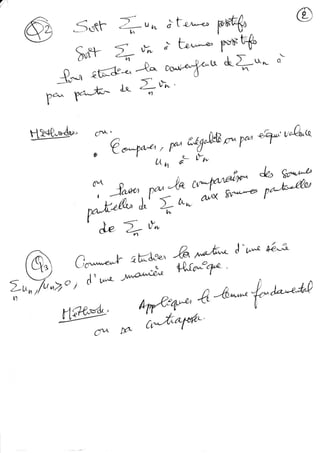 ②
Q2 Soit Σ un à termes positifs
n
Soit Σ vn à termes positifs
n
Pour étudier la convergence de Σ un à
n
peu partir de Σ vn.
n
Méthode. on.
• Comparer, par inégalité ou par équivalence
un à vn
ou
• passer par la comparaison des sommes
partielles de Σ un aux sommes partielles
n
de Σ vn
n
Q3 Comment étudier la nature d'une série
Σ un, un≥0, d'une manière théorique.
n
Méthode. Appliquer le lemme fondamental
ou sa contraposée.